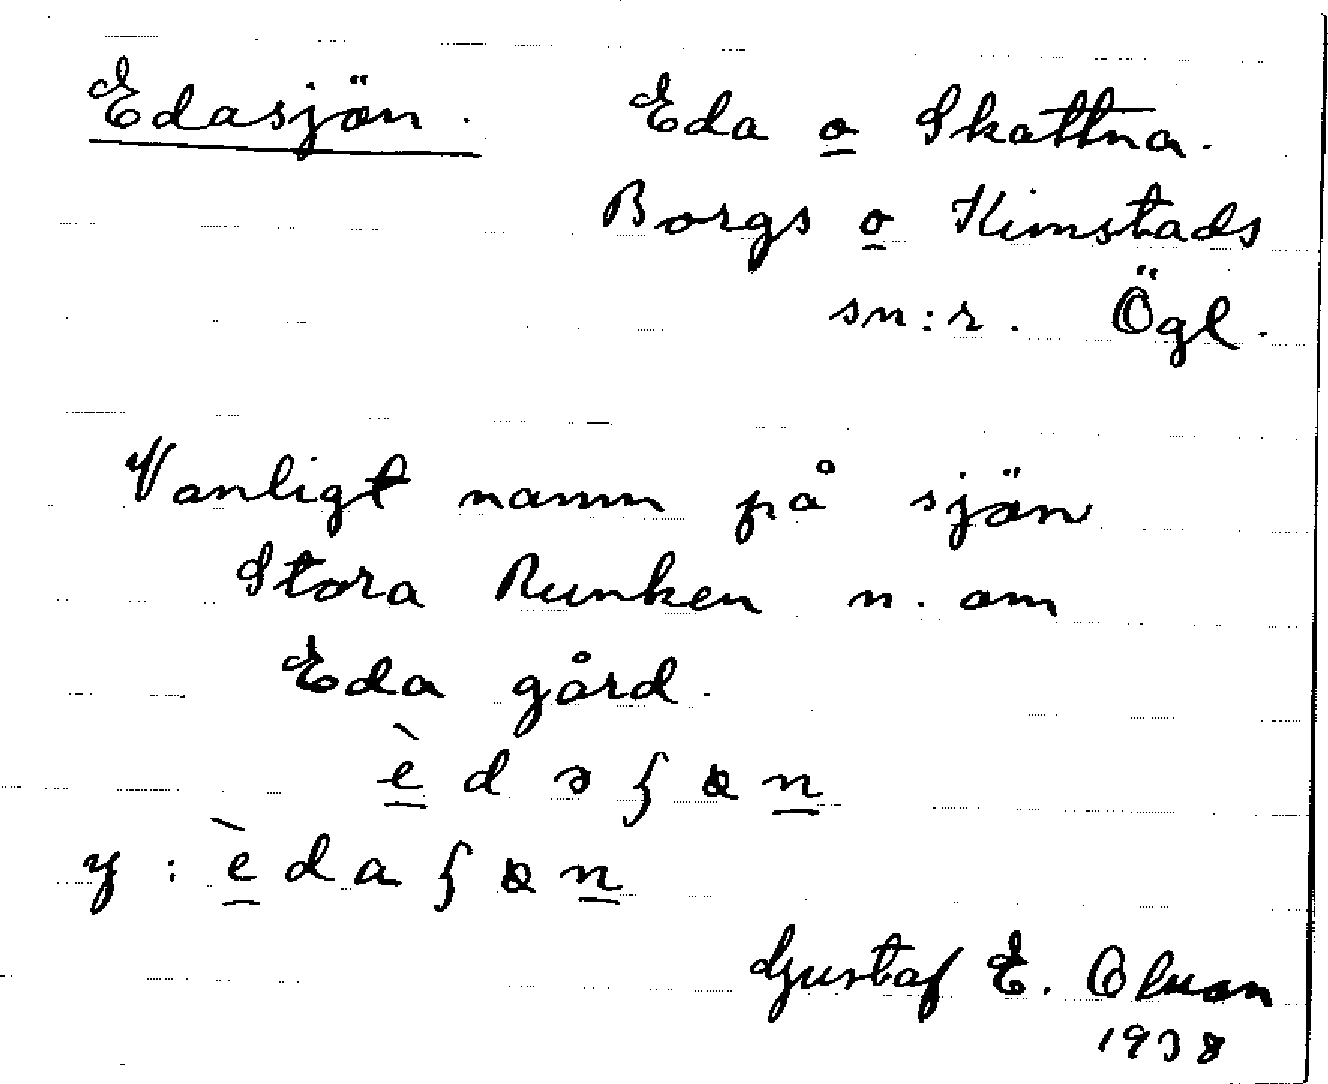 Edasjön. Eda o Skattna.
Borgs o Kimstads
sn:r. Ögl.
Vanligt namn på sjön
Stora Runken n. om
Eda gård.
èdəʃɶn
y: èdaʃɶn
Gustaf E. Olsson
1938